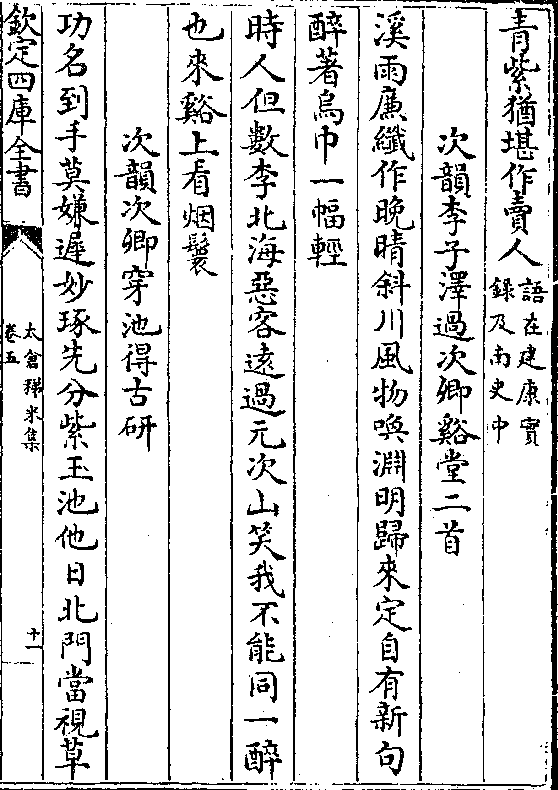 青紫猶堪作賣人語在建康實
録及南史中
次韻李子澤過次卿谿堂二首
溪雨㢘纖作晚晴斜川風物喚淵明歸來定自有新句
醉著烏巾一幅輕
時人但數李北海惡客遠過元次山笑我不能同一醉
也來谿上看烟鬟
次韻次卿穿池得古研
功名到手莫嫌遲妙琢先分紫玉池他日北門當視草
欽定四庫全書
太倉稊米集
卷五
十一